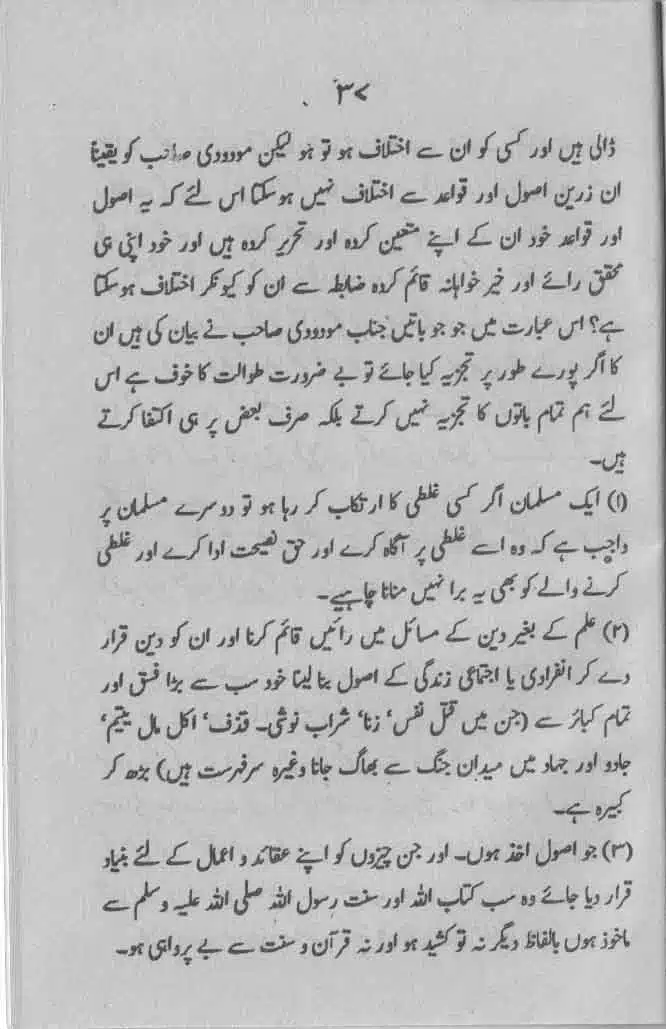 ۳۷
ڈالی ہیں اور کسی کو ان سے اختلاف ہو تو ہو لیکن مودودی صاحب کو یقیناً
ان زرین اصول اور قواعد سے اختلاف نہیں ہوسکتا اس لئے کہ یہ اصول
اور قواعد خود ان کے اپنے متعین کردہ اور تحریر کردہ ہیں اور خود اپنی ہی
محقق رائے اور خیر خواہانہ قائم کردہ ضابطہ سے ان کو کیونکر اختلاف ہوسکتا
ہے؟ اس عبارت میں جو جو باتیں جناب مودودی صاحب نے بیان کی ہیں ان
کا اگر پورے طور پر تجزیہ کیا جائے تو بے ضرورت طوالت کا خوف ہے اس
لئے ہم تمام باتوں کا تجزیہ نہیں کرتے بلکہ صرف بعض پر ہی اکتفا کرتے
ہیں۔
(۱) ایک مسلمان اگر کسی غلطی کا ارتکاب کر رہا ہو تو دوسرے مسلمان پر
واجب ہے کہ وہ اسے غلطی پر آگاہ کرے اور حق نصیحت ادا کرے اور غلطی
کرنے والے کو بھی یہ برا نہیں منانا چاہیے۔
(۲) علم کے بغیر دین کے مسائل میں رائیں قائم کرنا اور ان کو دین قرار
دے کر انفرادی یا اجتماعی زندگی کے اصول بنا لینا خود سب سے بڑا فسق اور
تمام کبائر سے (جن میں قتل نفس‘ زنا‘ شراب نوشی۔ قذف‘ اکل مال یتیم‘
جادو اور جہاد میں میدان جنگ سے بھاگ جانا وغیرہ سرفہرست ہیں) بڑھ کر
کبیرہ ہے۔
(۳) جو اصول اخذ ہوں۔ اور جن چیزوں کو اپنے عقائد و اعمال کے لئے بنیاد
قرار دیا جائے وہ سب کتاب اللہ اور سنت رسول اللہ صلی اللہ علیہ وسلم سے
ماخوذ ہوں بالفاظ دیگر نہ تو کشید ہو اور نہ قرآن و سنت سے بے پرواہی ہو۔